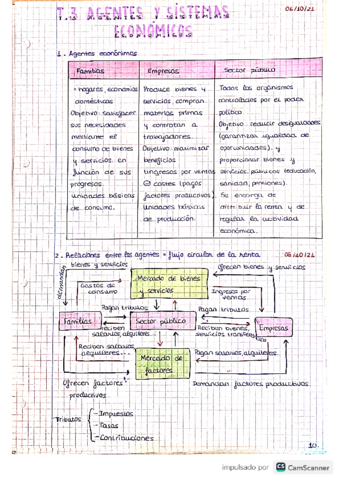 T.3 AGENTES Y SISTEMAS
ECONÓMICOS
06/10/21
1. Agentes económicos
Familias
• hogares, economías
domésticas
Objetivo satisfacer
sus necesidades
mediante el
consumo de bienes
y servicios en
función de sus
progresos.
unidades básicas
de consumo.
Empresas
Produce bienes y
servicios compran
materias primas
y contratan a
trabajadores.
Objetivo maximizar
beneficios
ingresos por ventas
costes (pagos
factores productivos).
Unidades básicas
de producción.
Sector público
Todos los organismos
controlados por el poder
político.
Objetivo reducir desigualdades
(garantizar igualdad de
oportunidades), y
proporcionar bienes y
servicios públicos (educación,
sanidad, pensiones).
Se encarga de
distribuir la renta y de
regular la actividad
económica.
2. Relaciones entre los agentes = flujo circular de la renta
06/10/21
demandan
bienes y servicios
Ofrecen bienes y servicios
Mercado de bienes
y servicios
Gastos de
consumo
Ingresos por
ventas
Pagan tributos
Pagan tributos
Familias
Sector público
Empresas
Reciben
salarios, alquileres...
Reciben bienes,
servicios, transferencias
Reciben salarios,
alquileres...
Mercado de
factores
Pagan salarios, alquileres
Ofrecen factores
productivos
Demandan factores productivos
Tributos
- Impuestos
- Tasas
- Contribuciones
10.
impulsado por CS CamScanner